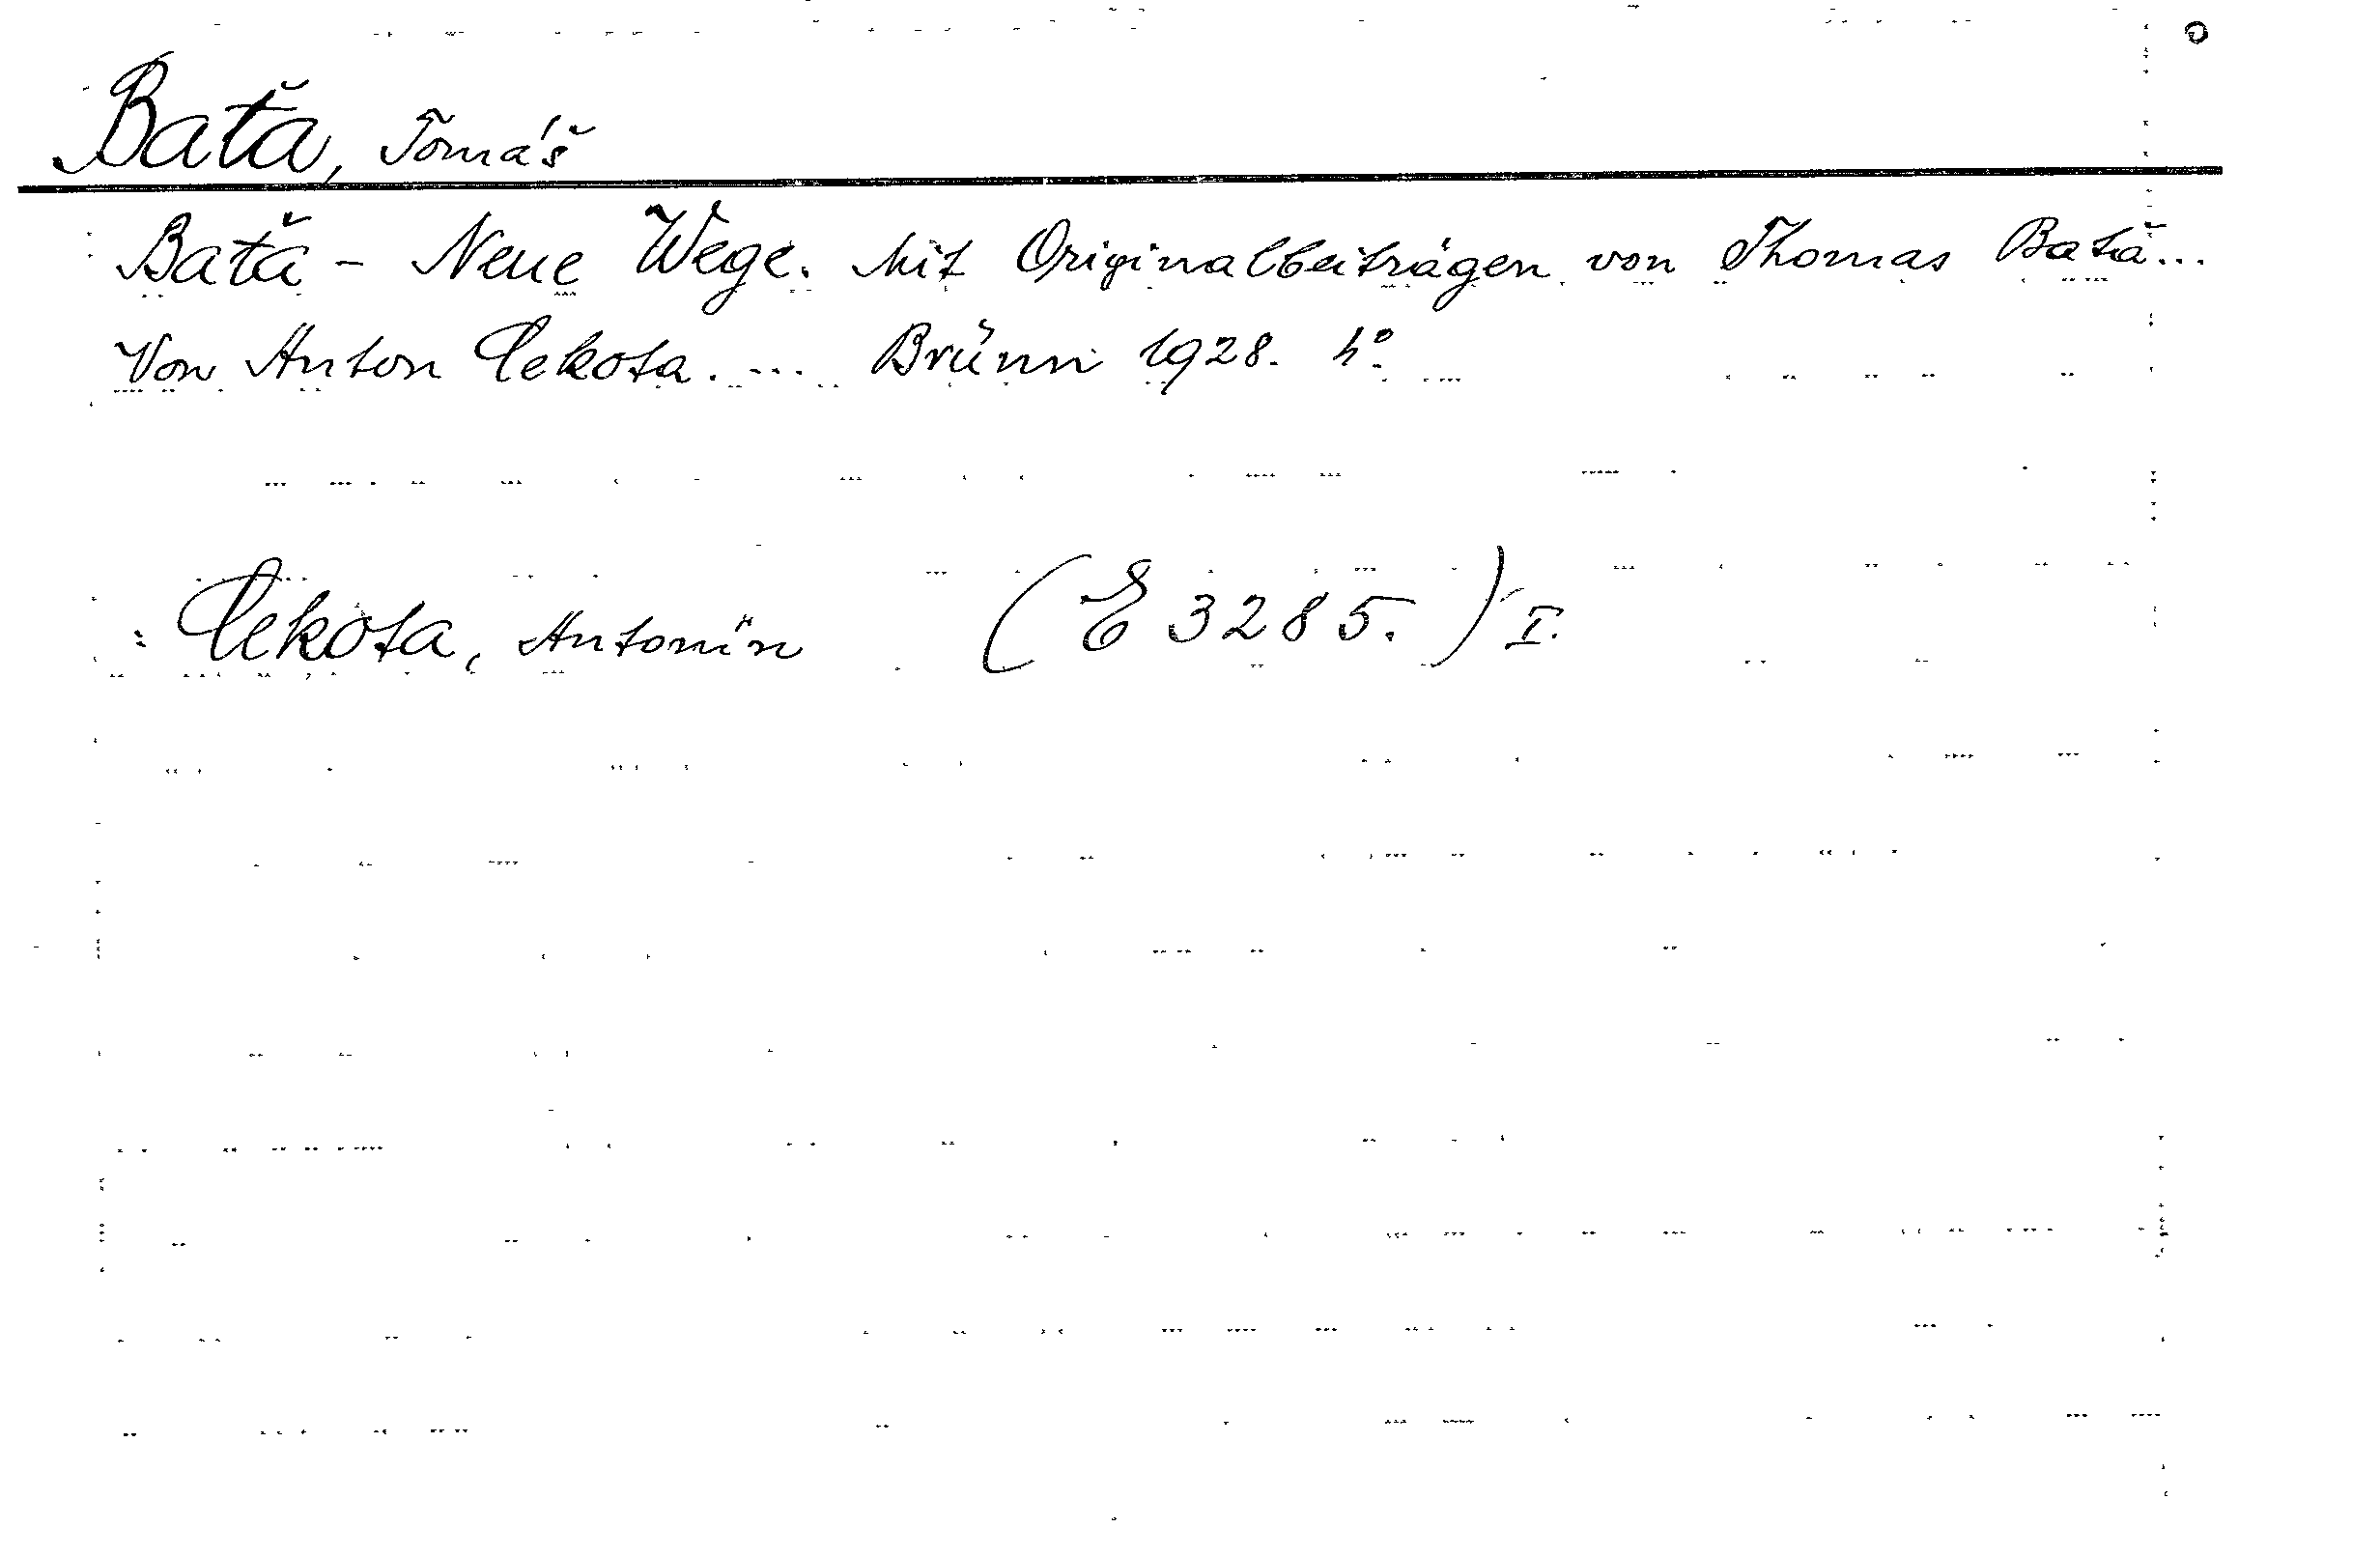 Baťa, Tomáš
Baťa - Neue Wege. Mit Originalbeiträgen von Thomas Baťa...
Von Anton Cekota. ... Brünn 1928. 4°.
: Cekota, Antonín (E 3285.) I.